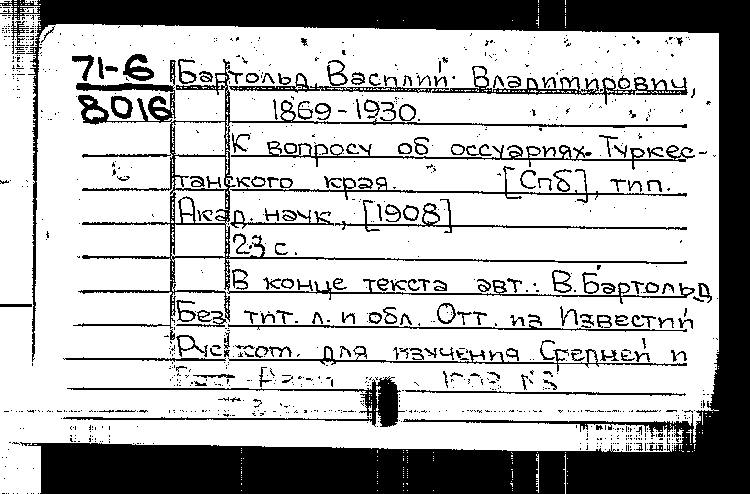 71-6 Бартольд, Василий Владимирович,
8016 1869-1930.
К вопросу об оссуариях Туркес-
танского края. [Спб.], тип.
Акад. наук, [1908]
23 с.
В конце текста авт.: В. Бартольд
Без тит. л. и обл. Отт. из Известий
Рус. ком. для изучения Средней и
1908 №8